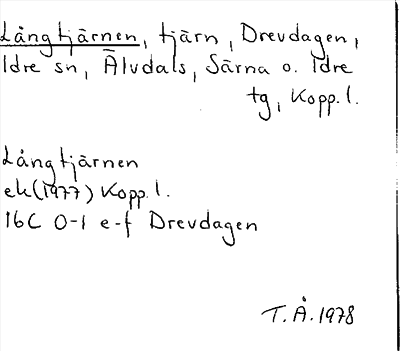 Långtjärnen, tjärn, Drevdagen,
Idre sn, Älvdals, Särna o. Idre
tg, Kopp. l.
Långtjärnen
ek(1977) Kopp. l.
16C 0-1 e-f Drevdagen
T.Å. 1978